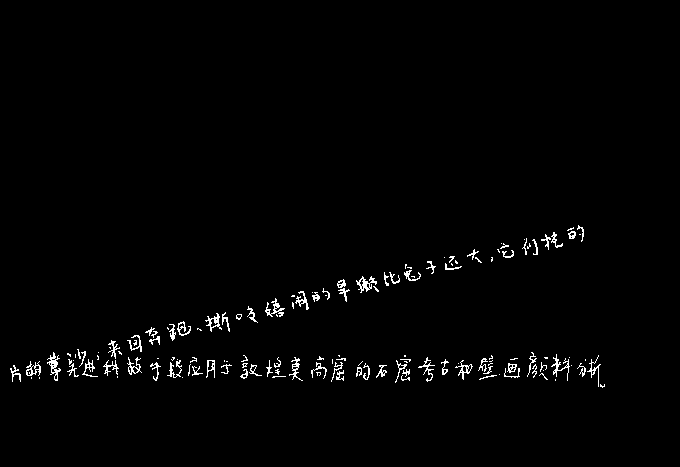 来回奔跑、撕咬嬉闹的旱獭比兔子还大,它们挖的
先进科技手段应用于敦煌莫高窟的石窟考古和壁画颜料分析